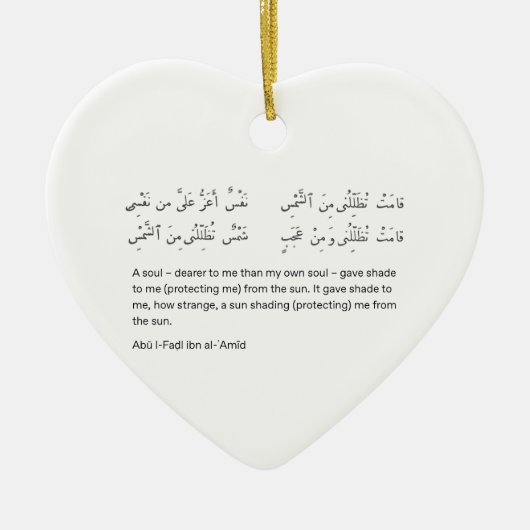 قامَتْ تُظَلِّلُنى مِنَ ٱلشَّمْسِ نَفْسٌ أَعَزُّ عَلىَّ من نَفْسِى
قامَتْ تُظَلِّلُنى وَمِنْ عَجَبٍ شَمْسٌ تُظَلِّلُنى مِنَ ٱلشَّمْسِ
A soul – dearer to me than my own soul – gave shade
to me (protecting me) from the sun. It gave shade to
me, how strange, a sun shading (protecting) me from
the sun.
Abū l-Faḍl ibn al-ʿAmīd